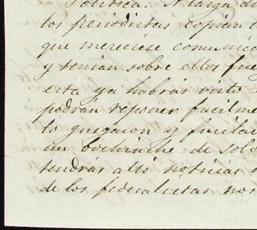 Política. A larga di
los periodistas copian
que mereciese comunic
y venian sobre ellos fue
esta ya habrás visto
podran reponer facilmen
lo juzgaron y fusila
un bochinche de sol
tendrás allí noticias
de los federalistas nos